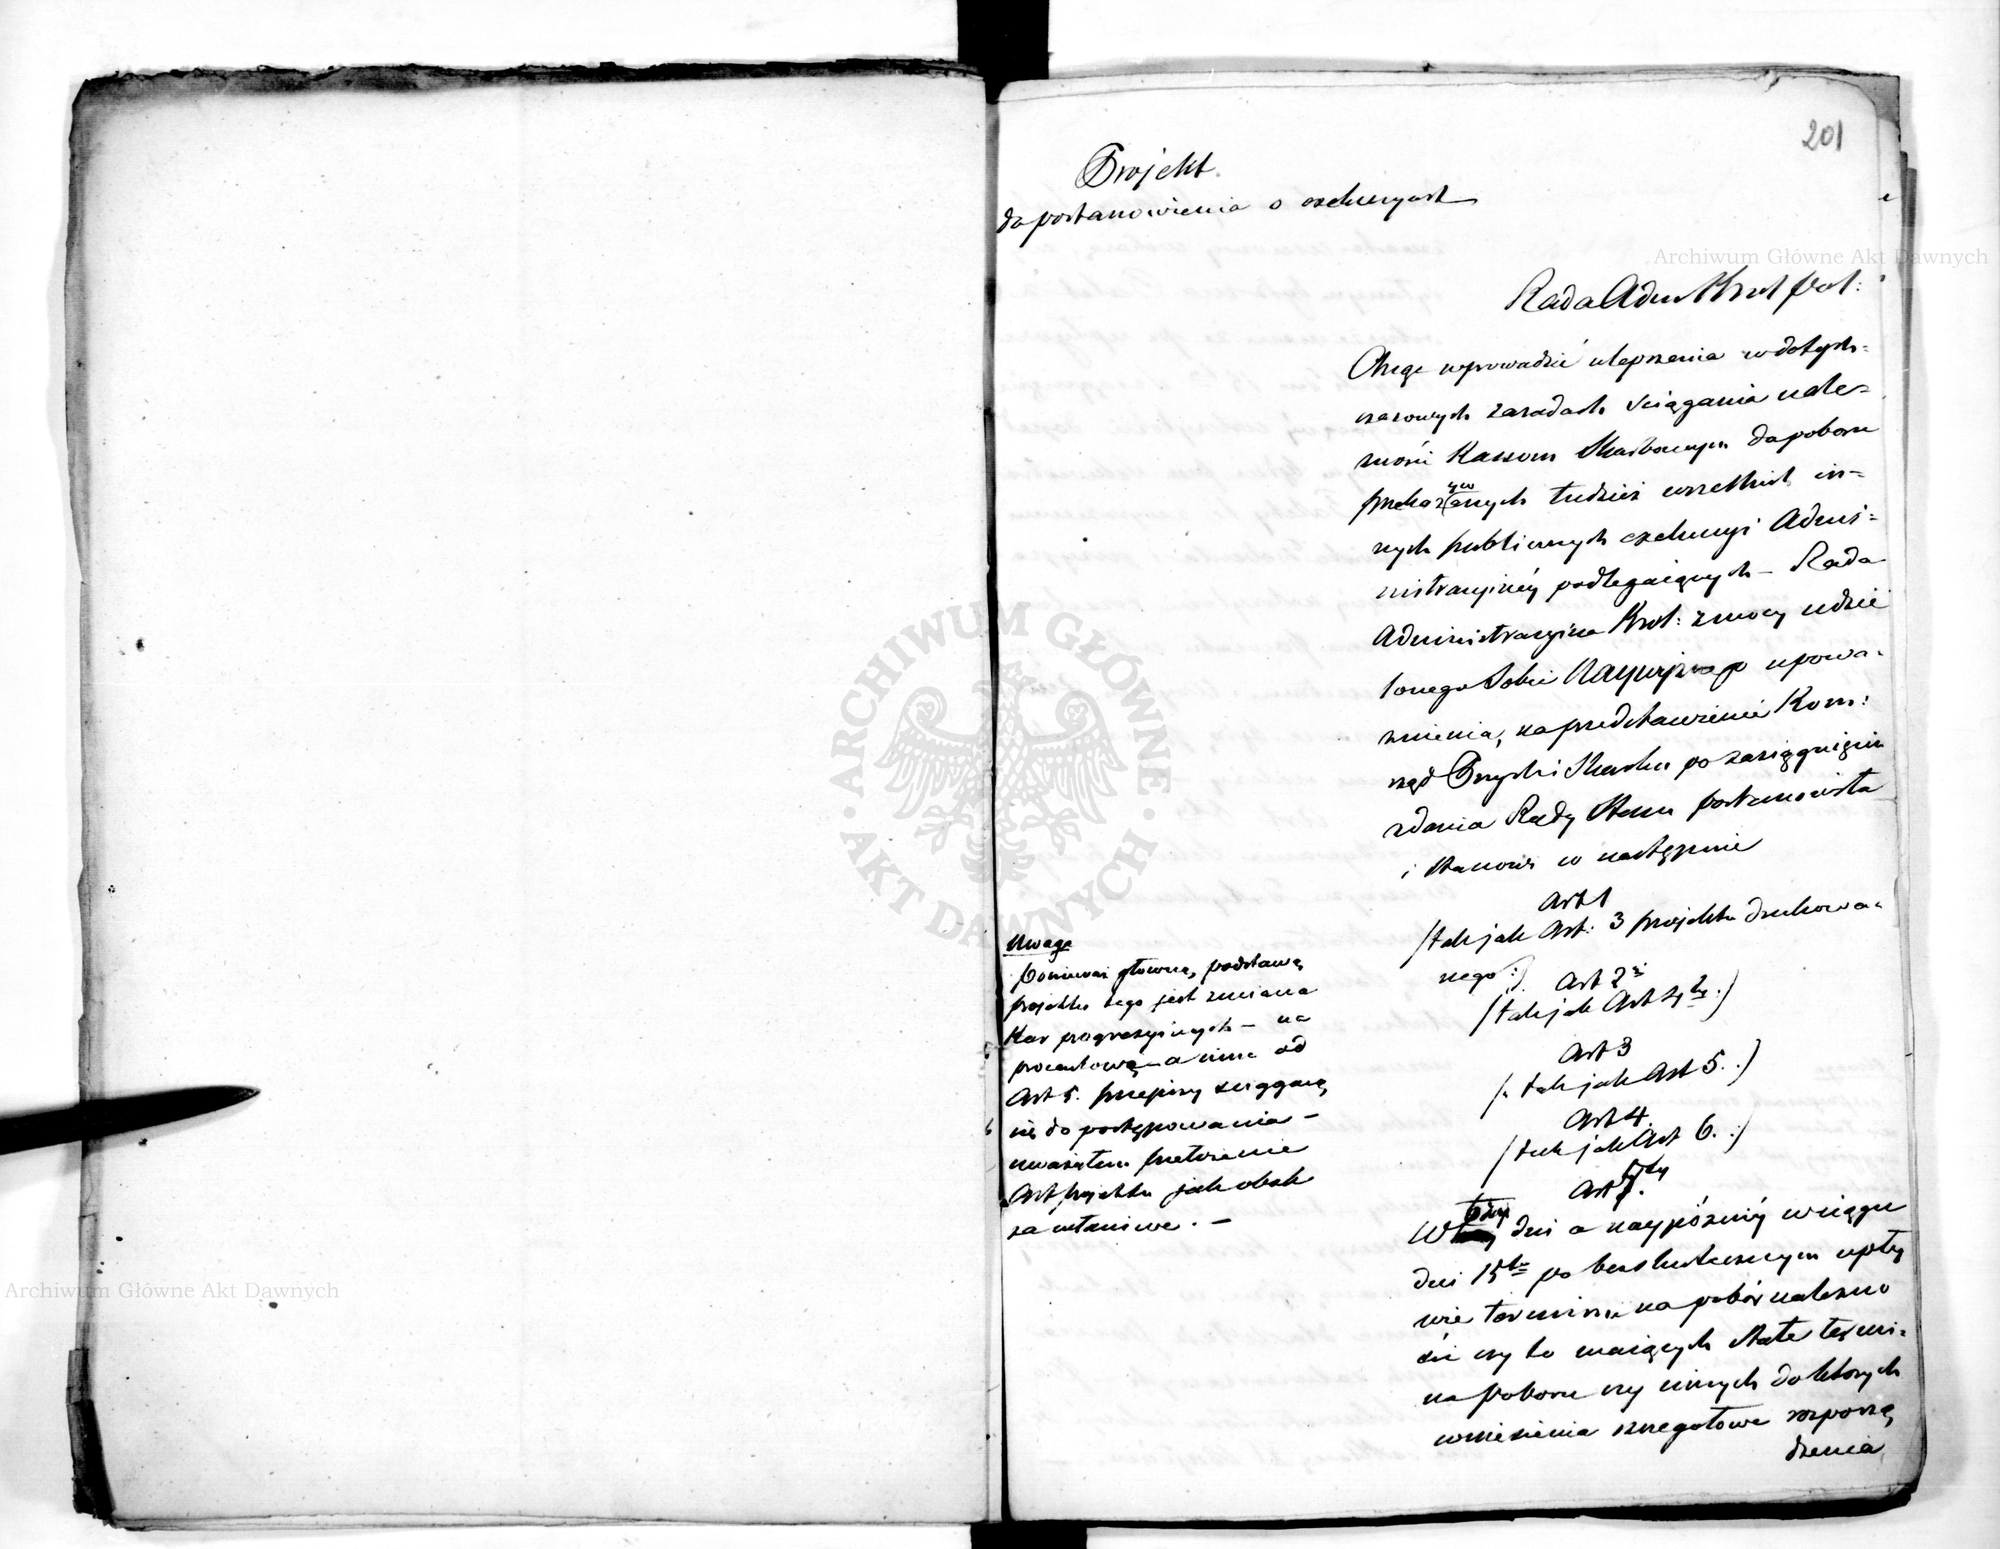 201
Projekt
do postanowienia o exekucyach
Rada Adm Król Pol:
Chcąc wprowadzić ulepszenia w dotych=
czasowych zasadach ściągania nale=
żności Kassom Skarbowym do poboru
przekazywanych tudzież wszelkich in=
nych publicznych exekucyi Admi=
nistracyinéy podlegaiących – Rada
Administracyina Król: z mocy udzie
lonego Sobie Naywyższego upowa=
żnienia, na przedstawienie Kom:
rząd Przych i Skarbu po zasiągnięciu
zdania Rady Stanu postanowiła
i stanowi co następuie
Art 1
/tak jak Art: 3 projektu drukowa=
nego:/.
Art 2i
/tak jak Art 4ty:/
Art 3
/: tak jak Art 5.:/
Art 4.
/tak jak Art 6.:/
Art 5ty
W dni a naypóźniéy w ciągu
dni 15tu po bezskutecznym upły
wie terminu na pobór należno
ści czy to maiących stałe termi=
na poboru czy innych do których
wniesienia szczegółowe rozporzą
dzenia
Uwaga
Ponieważ główną podstawą
projektu tego jest zmiana
Kar progressyinych – na
procentową – a inne od
Art 5. przepisy ściągaią
się do postępowania –
uważałem przełożenie
Art projektu jak obok
za właściwe. –
Archiwum Główne Akt Dawnych
Archiwum Główne Akt Dawnych
ARCHIWUM GŁÓWNE · AKT DAWNYCH ·